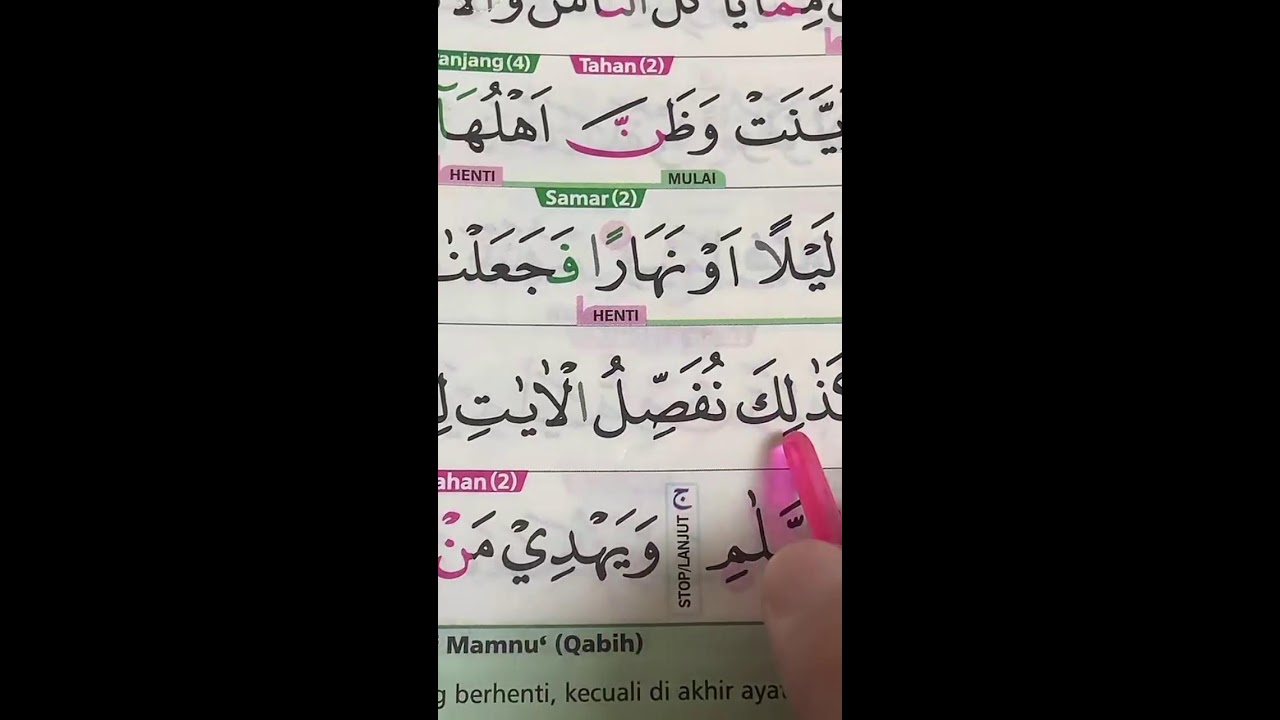 مِمَّا يَأْكُلُ النَّاسُ
anjang (4) Tahan (2)
وَظَنَّ اَهْلُهَآ
HENTI MULAI
Samar (2)
لَيْلًا اَوْ نَهَارًا فَجَعَلْنٰ
HENTI
كَذٰلِكَ نُفَصِّلُ الْاٰيٰتِ لِ
ahan (2)
وَيَهْدِيْ مَنْ
STOP/LANJUT ج
Mamnu‘ (Qabih)
g berhenti, kecuali di akhir ayat